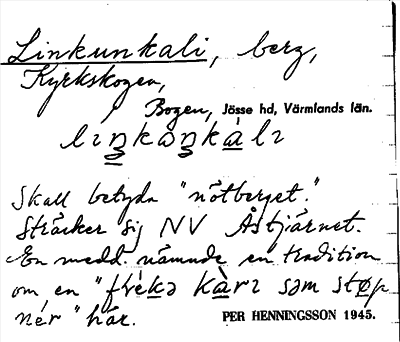 Linkunkali, berg,
Kyrkskogen,
Bogen, Jösse hd, Värmlands län.
liŋkəŋkàli
Skall betyda "nötberget."
Sträcker sig NV Åstjärnet.
En medd. nämnde en tradition
om en "frékə kàrı səm støp
nér" här.
PER HENNINGSSON 1945.